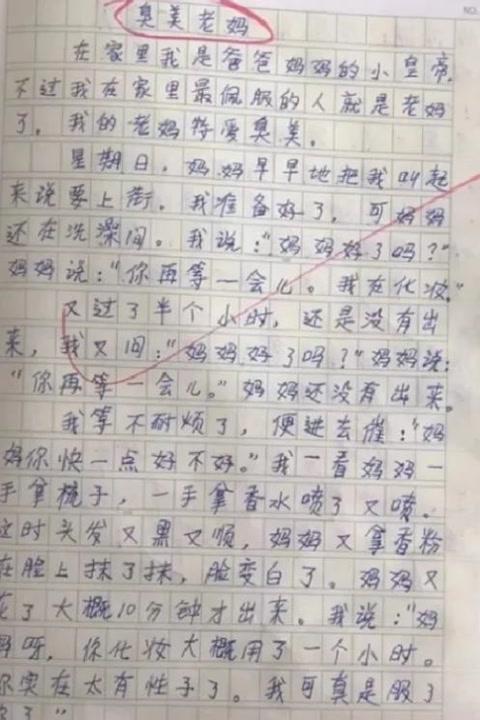 臭美老妈
在家里我是爸爸妈妈的小皇帝,
不过我在家里最佩服的人就是老妈
了。我的老妈特爱臭美。
星期日,妈妈早早地把我叫起
来说要上街。我准备好了,可妈妈
还在洗澡间。我说:“妈妈好了吗?”
妈妈说:“你再等一会儿。我在化妆。”
又过了半个小时,还是没有出
来,我又问:“妈妈好了吗?”妈妈说:
“你再等一会儿。”妈妈还没有出来。
我等不耐烦了,便进去催:“妈
妈你快一点好不好。”我一看妈妈一
手拿梳子,一手拿香水喷了又喷。
这时头发又黑又顺,妈妈又拿香粉
在脸上抹了抹,脸变白了。妈妈又
花了大概10分钟才出来。我说:“妈
呀,你化妆大概用了一个小时。
你实在太有性子了。我可真是服了
了”
NO.